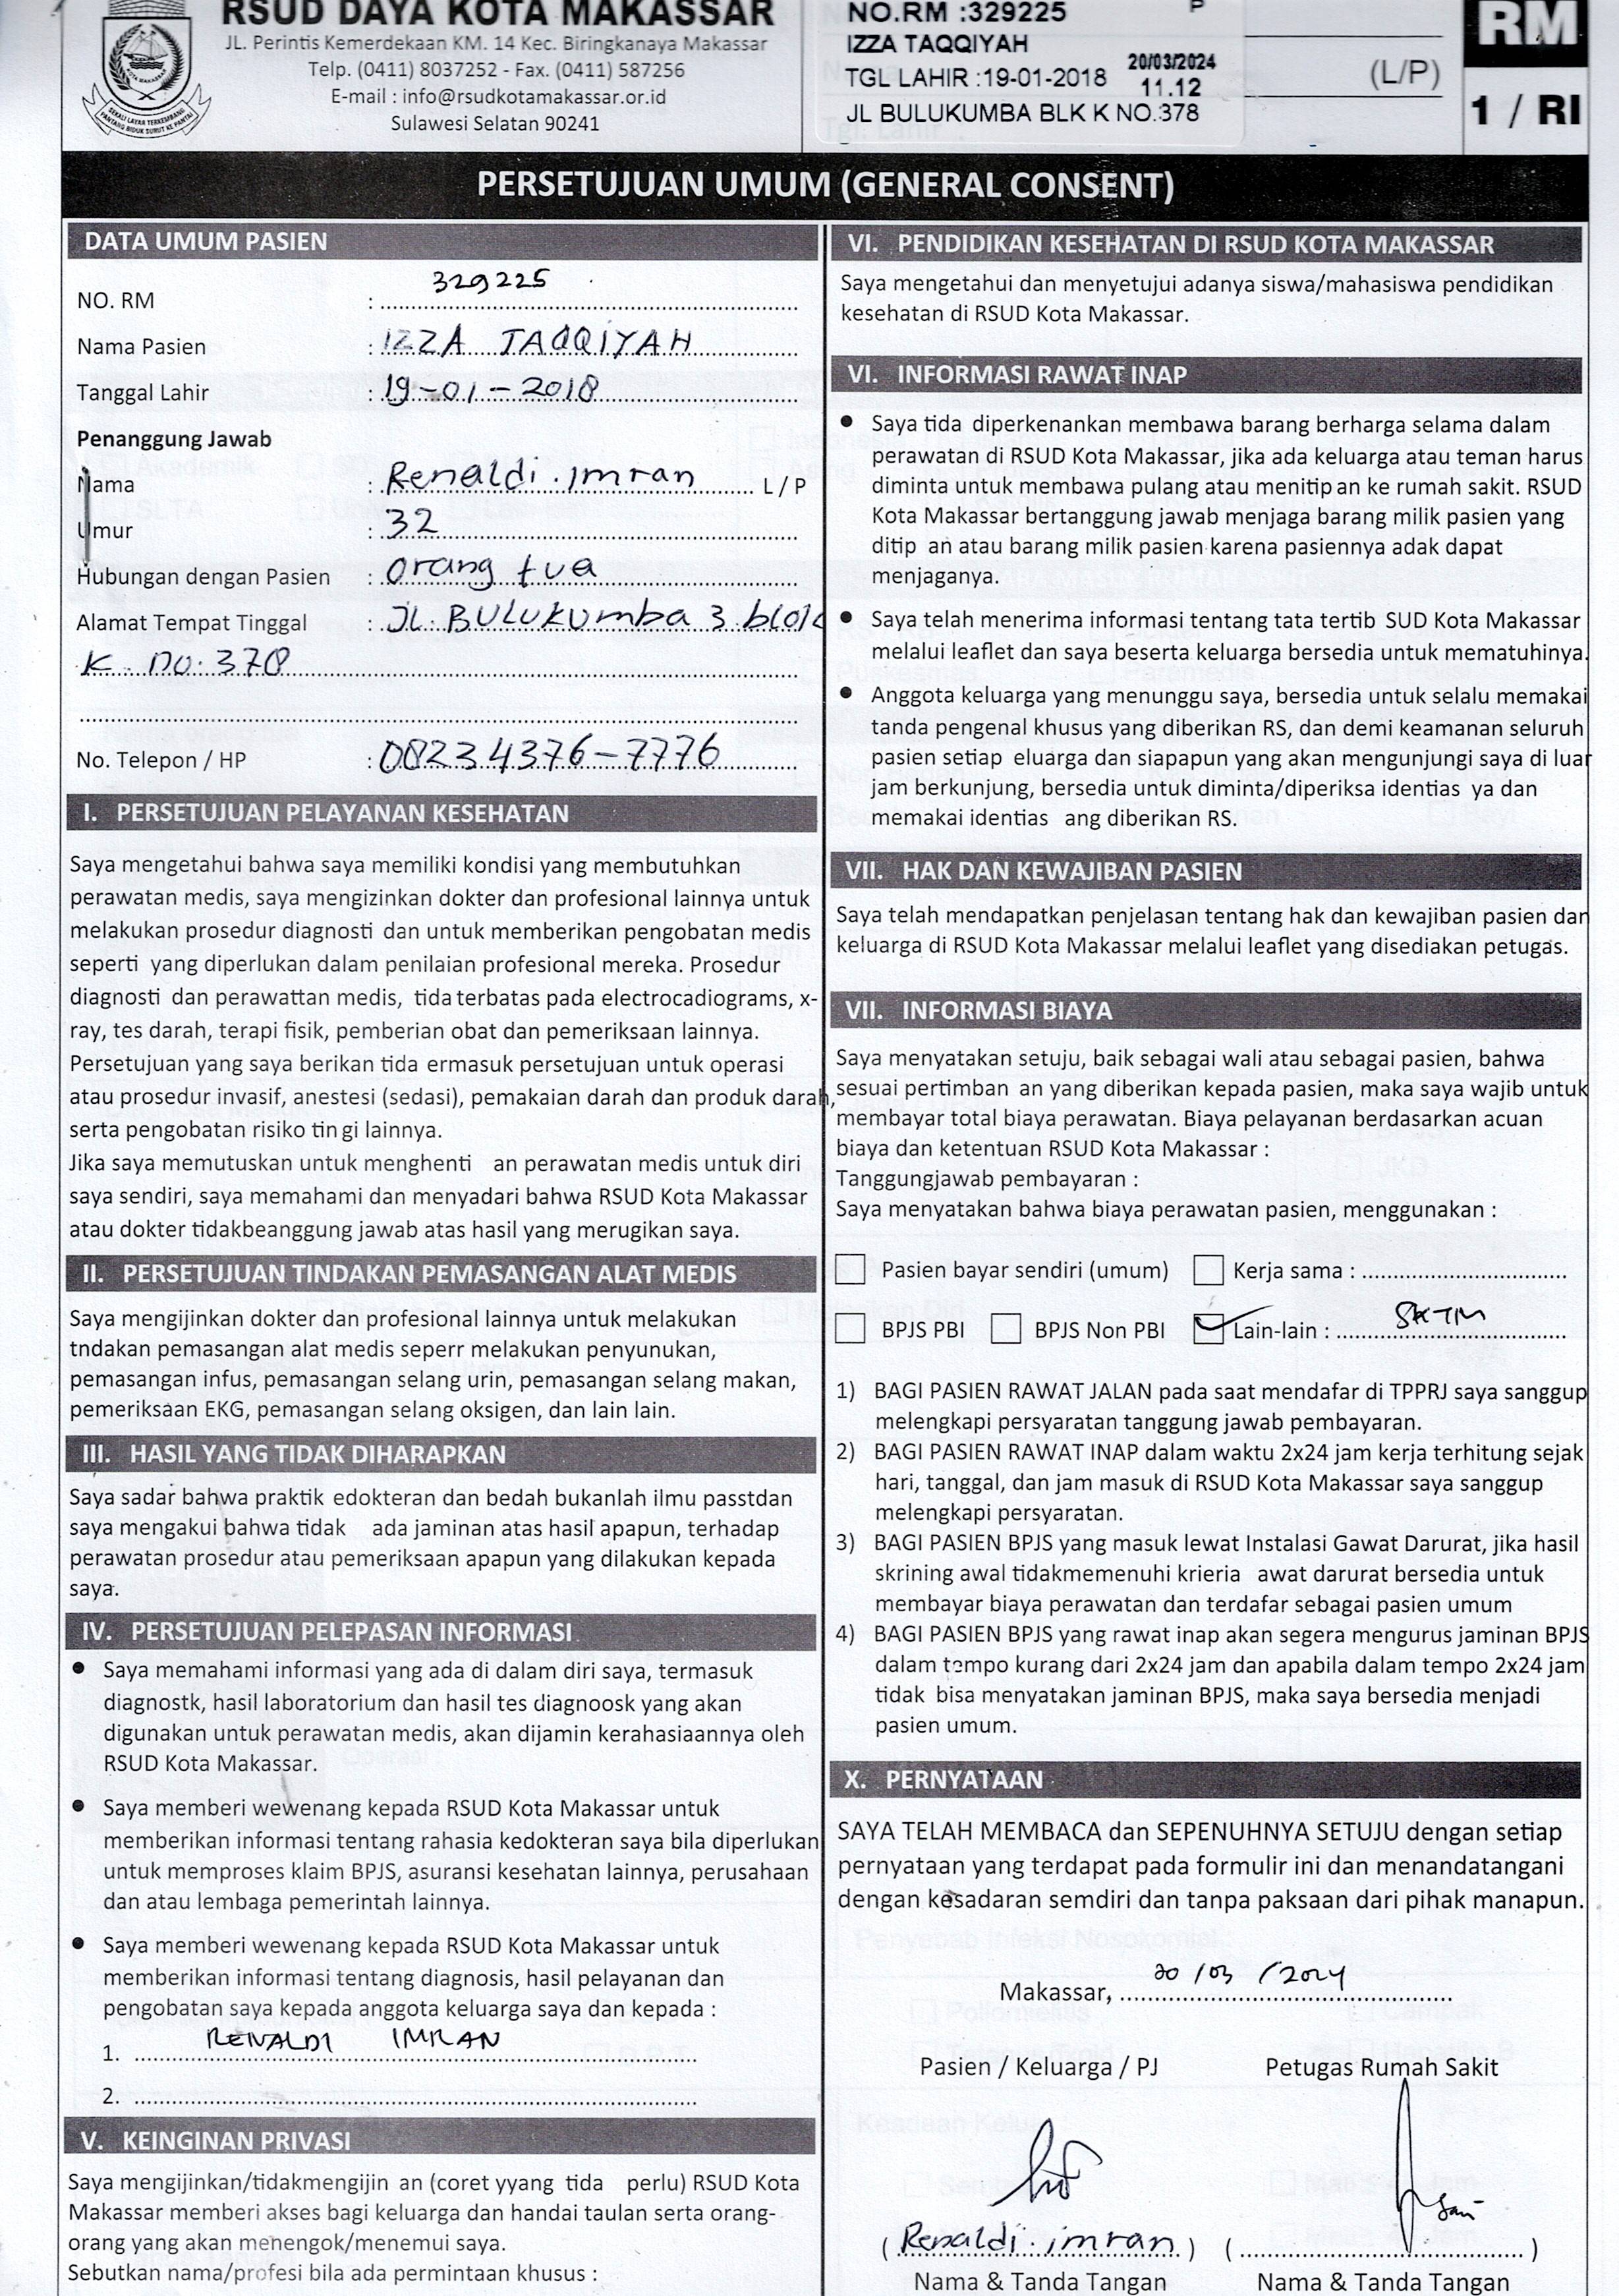 RSUD DAYA KOTA MAKASSAR
JL. Perintis Kemerdekaan KM. 14 Kec. Biringkanaya Makassar
Telp. (0411) 8037252 - Fax. (0411) 587256
E-mail : info@rsudkotamakassar.or.id
Sulawesi Selatan 90241
NO.RM :329225 P
IZZA TAQQIYAH
TGL LAHIR :19-01-2018 20/03/2024
11.12
JL BULUKUMBA BLK K NO.378
(L/P)
RM
1 / RI
PERSETUJUAN UMUM (GENERAL CONSENT)
DATA UMUM PASIEN
NO. RM : 329225
Nama Pasien : IZZA TAQQIYAH
Tanggal Lahir : 19-01-2018
Penanggung Jawab
Nama : Renaldi.imran L / P
Umur : 32
Hubungan dengan Pasien : orang tua
Alamat Tempat Tinggal : JL. BULUKUmba 3 blok
K no.378
No. Telepon / HP : 08234376-7776
I. PERSETUJUAN PELAYANAN KESEHATAN
Saya mengetahui bahwa saya memiliki kondisi yang membutuhkan
perawatan medis, saya mengizinkan dokter dan profesional lainnya untuk
melakukan prosedur diagnosti dan untuk memberikan pengobatan medis
seperti yang diperlukan dalam penilaian profesional mereka. Prosedur
diagnosti dan perawattan medis, tida terbatas pada electrocadiograms, x-
ray, tes darah, terapi fisik, pemberian obat dan pemeriksaan lainnya.
Persetujuan yang saya berikan tida ermasuk persetujuan untuk operasi
atau prosedur invasif, anestesi (sedasi), pemakaian darah dan produk darah,
serta pengobatan risiko tin gi lainnya.
Jika saya memutuskan untuk menghenti an perawatan medis untuk diri
saya sendiri, saya memahami dan menyadari bahwa RSUD Kota Makassar
atau dokter tidakbeanggung jawab atas hasil yang merugikan saya.
II. PERSETUJUAN TINDAKAN PEMASANGAN ALAT MEDIS
Saya mengijinkan dokter dan profesional lainnya untuk melakukan
tndakan pemasangan alat medis seperr melakukan penyunukan,
pemasangan infus, pemasangan selang urin, pemasangan selang makan,
pemeriksaan EKG, pemasangan selang oksigen, dan lain lain.
III. HASIL YANG TIDAK DIHARAPKAN
Saya sadar bahwa praktik edokteran dan bedah bukanlah ilmu passtdan
saya mengakui bahwa tidak ada jaminan atas hasil apapun, terhadap
perawatan prosedur atau pemeriksaan apapun yang dilakukan kepada
saya.
IV. PERSETUJUAN PELEPASAN INFORMASI
● Saya memahami informasi yang ada di dalam diri saya, termasuk
diagnostk, hasil laboratorium dan hasil tes diagnoosk yang akan
digunakan untuk perawatan medis, akan dijamin kerahasiaannya oleh
RSUD Kota Makassar.
● Saya memberi wewenang kepada RSUD Kota Makassar untuk
memberikan informasi tentang rahasia kedokteran saya bila diperlukan
untuk memproses klaim BPJS, asuransi kesehatan lainnya, perusahaan
dan atau lembaga pemerintah lainnya.
● Saya memberi wewenang kepada RSUD Kota Makassar untuk
memberikan informasi tentang diagnosis, hasil pelayanan dan
pengobatan saya kepada anggota keluarga saya dan kepada :
1. RENALDI IMRAN
2.
V. KEINGINAN PRIVASI
Saya mengijinkan/tidakmengijin an (coret yyang tida perlu) RSUD Kota
Makassar memberi akses bagi keluarga dan handai taulan serta orang-
orang yang akan menengok/menemui saya.
Sebutkan nama/profesi bila ada permintaan khusus :
VI. PENDIDIKAN KESEHATAN DI RSUD KOTA MAKASSAR
Saya mengetahui dan menyetujui adanya siswa/mahasiswa pendidikan
kesehatan di RSUD Kota Makassar.
VI. INFORMASI RAWAT INAP
● Saya tida diperkenankan membawa barang berharga selama dalam
perawatan di RSUD Kota Makassar, jika ada keluarga atau teman harus
diminta untuk membawa pulang atau menitip an ke rumah sakit. RSUD
Kota Makassar bertanggung jawab menjaga barang milik pasien yang
ditip an atau barang milik pasien karena pasiennya adak dapat
menjaganya.
● Saya telah menerima informasi tentang tata tertib SUD Kota Makassar
melalui leaflet dan saya beserta keluarga bersedia untuk mematuhinya.
● Anggota keluarga yang menunggu saya, bersedia untuk selalu memakai
tanda pengenal khusus yang diberikan RS, dan demi keamanan seluruh
pasien setiap eluarga dan siapapun yang akan mengunjungi saya di luar
jam berkunjung, bersedia untuk diminta/diperiksa identias ya dan
memakai identias ang diberikan RS.
VII. HAK DAN KEWAJIBAN PASIEN
Saya telah mendapatkan penjelasan tentang hak dan kewajiban pasien dan
keluarga di RSUD Kota Makassar melalui leaflet yang disediakan petugas.
VII. INFORMASI BIAYA
Saya menyatakan setuju, baik sebagai wali atau sebagai pasien, bahwa
sesuai pertimban an yang diberikan kepada pasien, maka saya wajib untuk
membayar total biaya perawatan. Biaya pelayanan berdasarkan acuan
biaya dan ketentuan RSUD Kota Makassar :
Tanggungjawab pembayaran :
Saya menyatakan bahwa biaya perawatan pasien, menggunakan :
Pasien bayar sendiri (umum) Kerja sama :
BPJS PBI BPJS Non PBI Lain-lain : SKTM
1) BAGI PASIEN RAWAT JALAN pada saat mendafar di TPPRJ saya sanggup
melengkapi persyaratan tanggung jawab pembayaran.
2) BAGI PASIEN RAWAT INAP dalam waktu 2x24 jam kerja terhitung sejak
hari, tanggal, dan jam masuk di RSUD Kota Makassar saya sanggup
melengkapi persyaratan.
3) BAGI PASIEN BPJS yang masuk lewat Instalasi Gawat Darurat, jika hasil
skrining awal tidakmemenuhi krieria awat darurat bersedia untuk
membayar biaya perawatan dan terdafar sebagai pasien umum
4) BAGI PASIEN BPJS yang rawat inap akan segera mengurus jaminan BPJS
dalam tempo kurang dari 2x24 jam dan apabila dalam tempo 2x24 jam
tidak bisa menyatakan jaminan BPJS, maka saya bersedia menjadi
pasien umum.
X. PERNYATAAN
SAYA TELAH MEMBACA dan SEPENUHNYA SETUJU dengan setiap
pernyataan yang terdapat pada formulir ini dan menandatangani
dengan kesadaran semdiri dan tanpa paksaan dari pihak manapun.
Makassar, 20 /03 /2024
Pasien / Keluarga / PJ Petugas Rumah Sakit
( Renaldi.imran ) ( )
Nama & Tanda Tangan Nama & Tanda Tangan